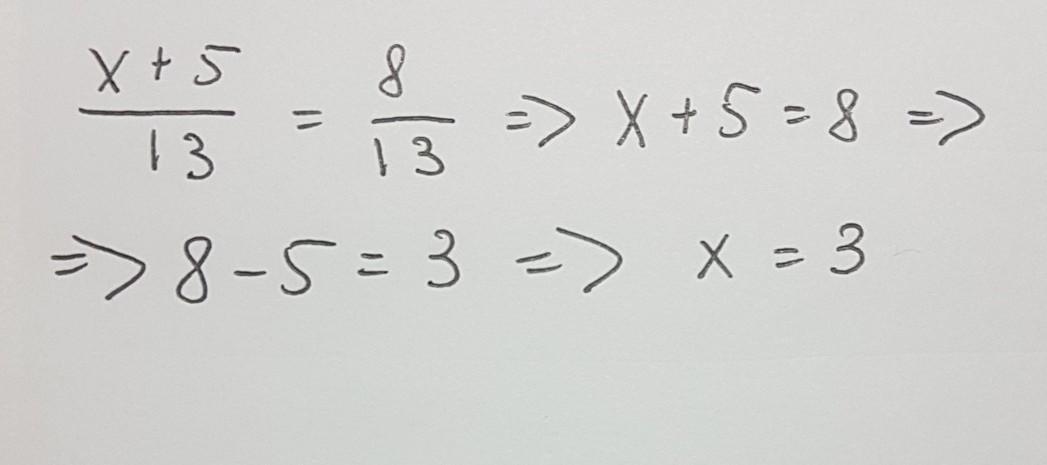 x+5/13 = 8/13 => x+5=8 =>
=> 8-5=3 => x=3